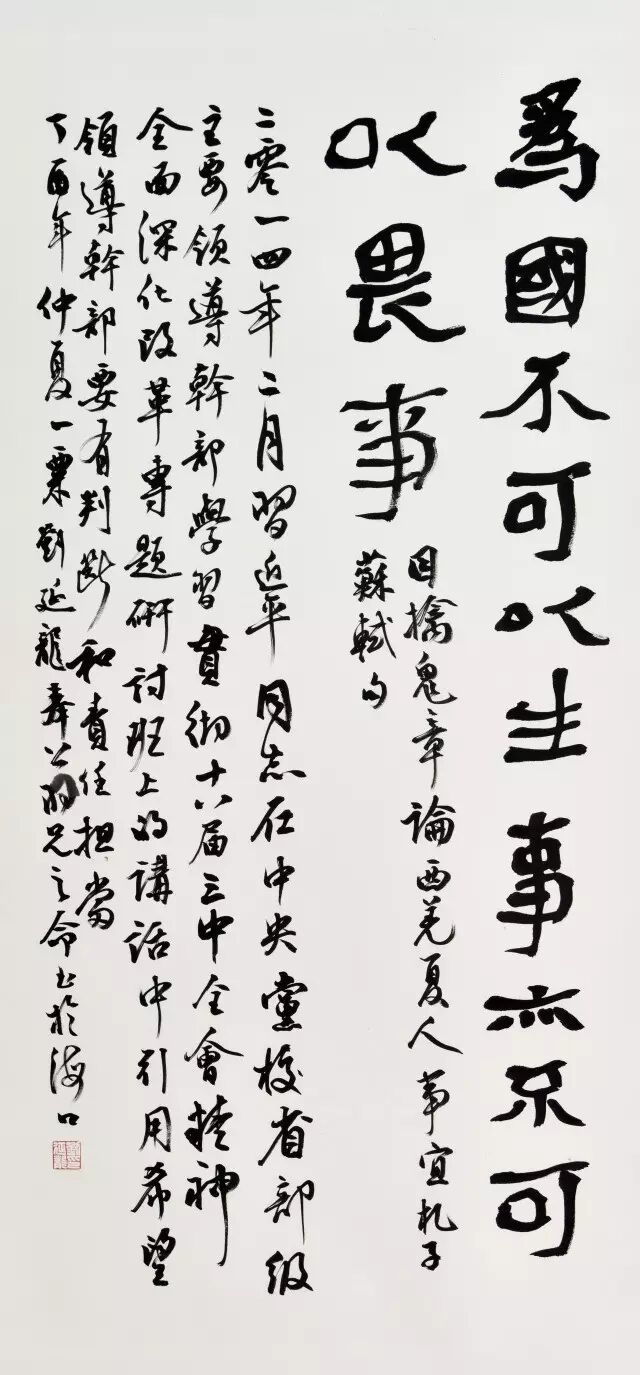 為國不可以生事亦不可
以畏事
因擒鬼章論西羌夏人事宜札子
蘇軾句
二零一四年二月習近平同志在中央黨校省部級
主要領導幹部學習貫彻十八届三中全會精神
全面深化改革專題研討班上的講話中引用希望
領導幹部要有判斷和責任担當
丁酉年仲夏一粟劉延龍奉 兄之命书於海口